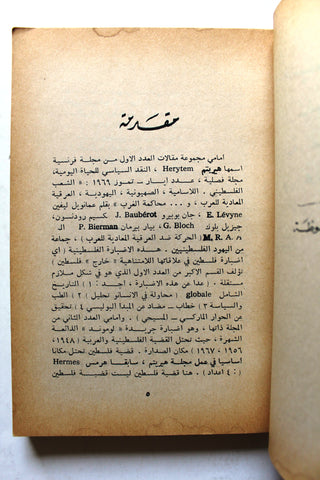 مقدمة
امامي مجموعة مقالات العدد الاول من مجلة فرنسية
اسمها هيريتم Herytem ، النقد السياسي للحياة اليومية،
مجلة فصلية ، عدد ايار ــ تموز ١٩٦٩ : « الشعب
الفلسطيني ، اللاسامية ، الصهيونية ، اليهودية ، العرقية
المعادية للعرب ، و ... محاكمة العرب » بقلم عمانويل ليفين
E. Lévyne ، جان بوبيرو J. Baubérot ، مكسيم رودنسون،
جيزيل بلوك G. Bloch ، بيار بيرمان P. Bierman ، الـ
M. R. A. A ( الحركة ضد العرقية المعادية للعرب ) ، جماعة
من اليهود الفلسطينيين . « هذه الاضبارة الفلسطينية (
اضبارة فلسطين في علاقاتها اللامتناهية « خارج » فلسطين )
تؤلف القسم الاكبر من العدد الاول الذي هو في شكل ملازم
( عدا عن هذه الاضبارة ، نجد : ١ ) التاريخ
الشامل globale ( محاولة في الانسنار تحليل ) ٢ ) الطب
والسياسة ٣ ) خطاب عن المبدأ البوليسي ٤ ) تاريخية
عن الحوار الماركي ــ المسيحي ) . وامامي العدد الثاني من
المجلة ذاتها ، وهو اضبارة جريدة « لوموند » الذائعة
الشهرة ، حيث تحتل القضية الفلسطينية والعربية ( ١٩٤٨،
١٩٥٦ ، ١٩٦٧ ) مكان الصدارة . قضية فلسطين تحتل مكانا
أساسيا في عمل مجلة هيريتم ، سابقا هرمس Hermes
( ٤ أعداد ) . هنا قضية فلسطين ليت قضيبة فلسطين
٥